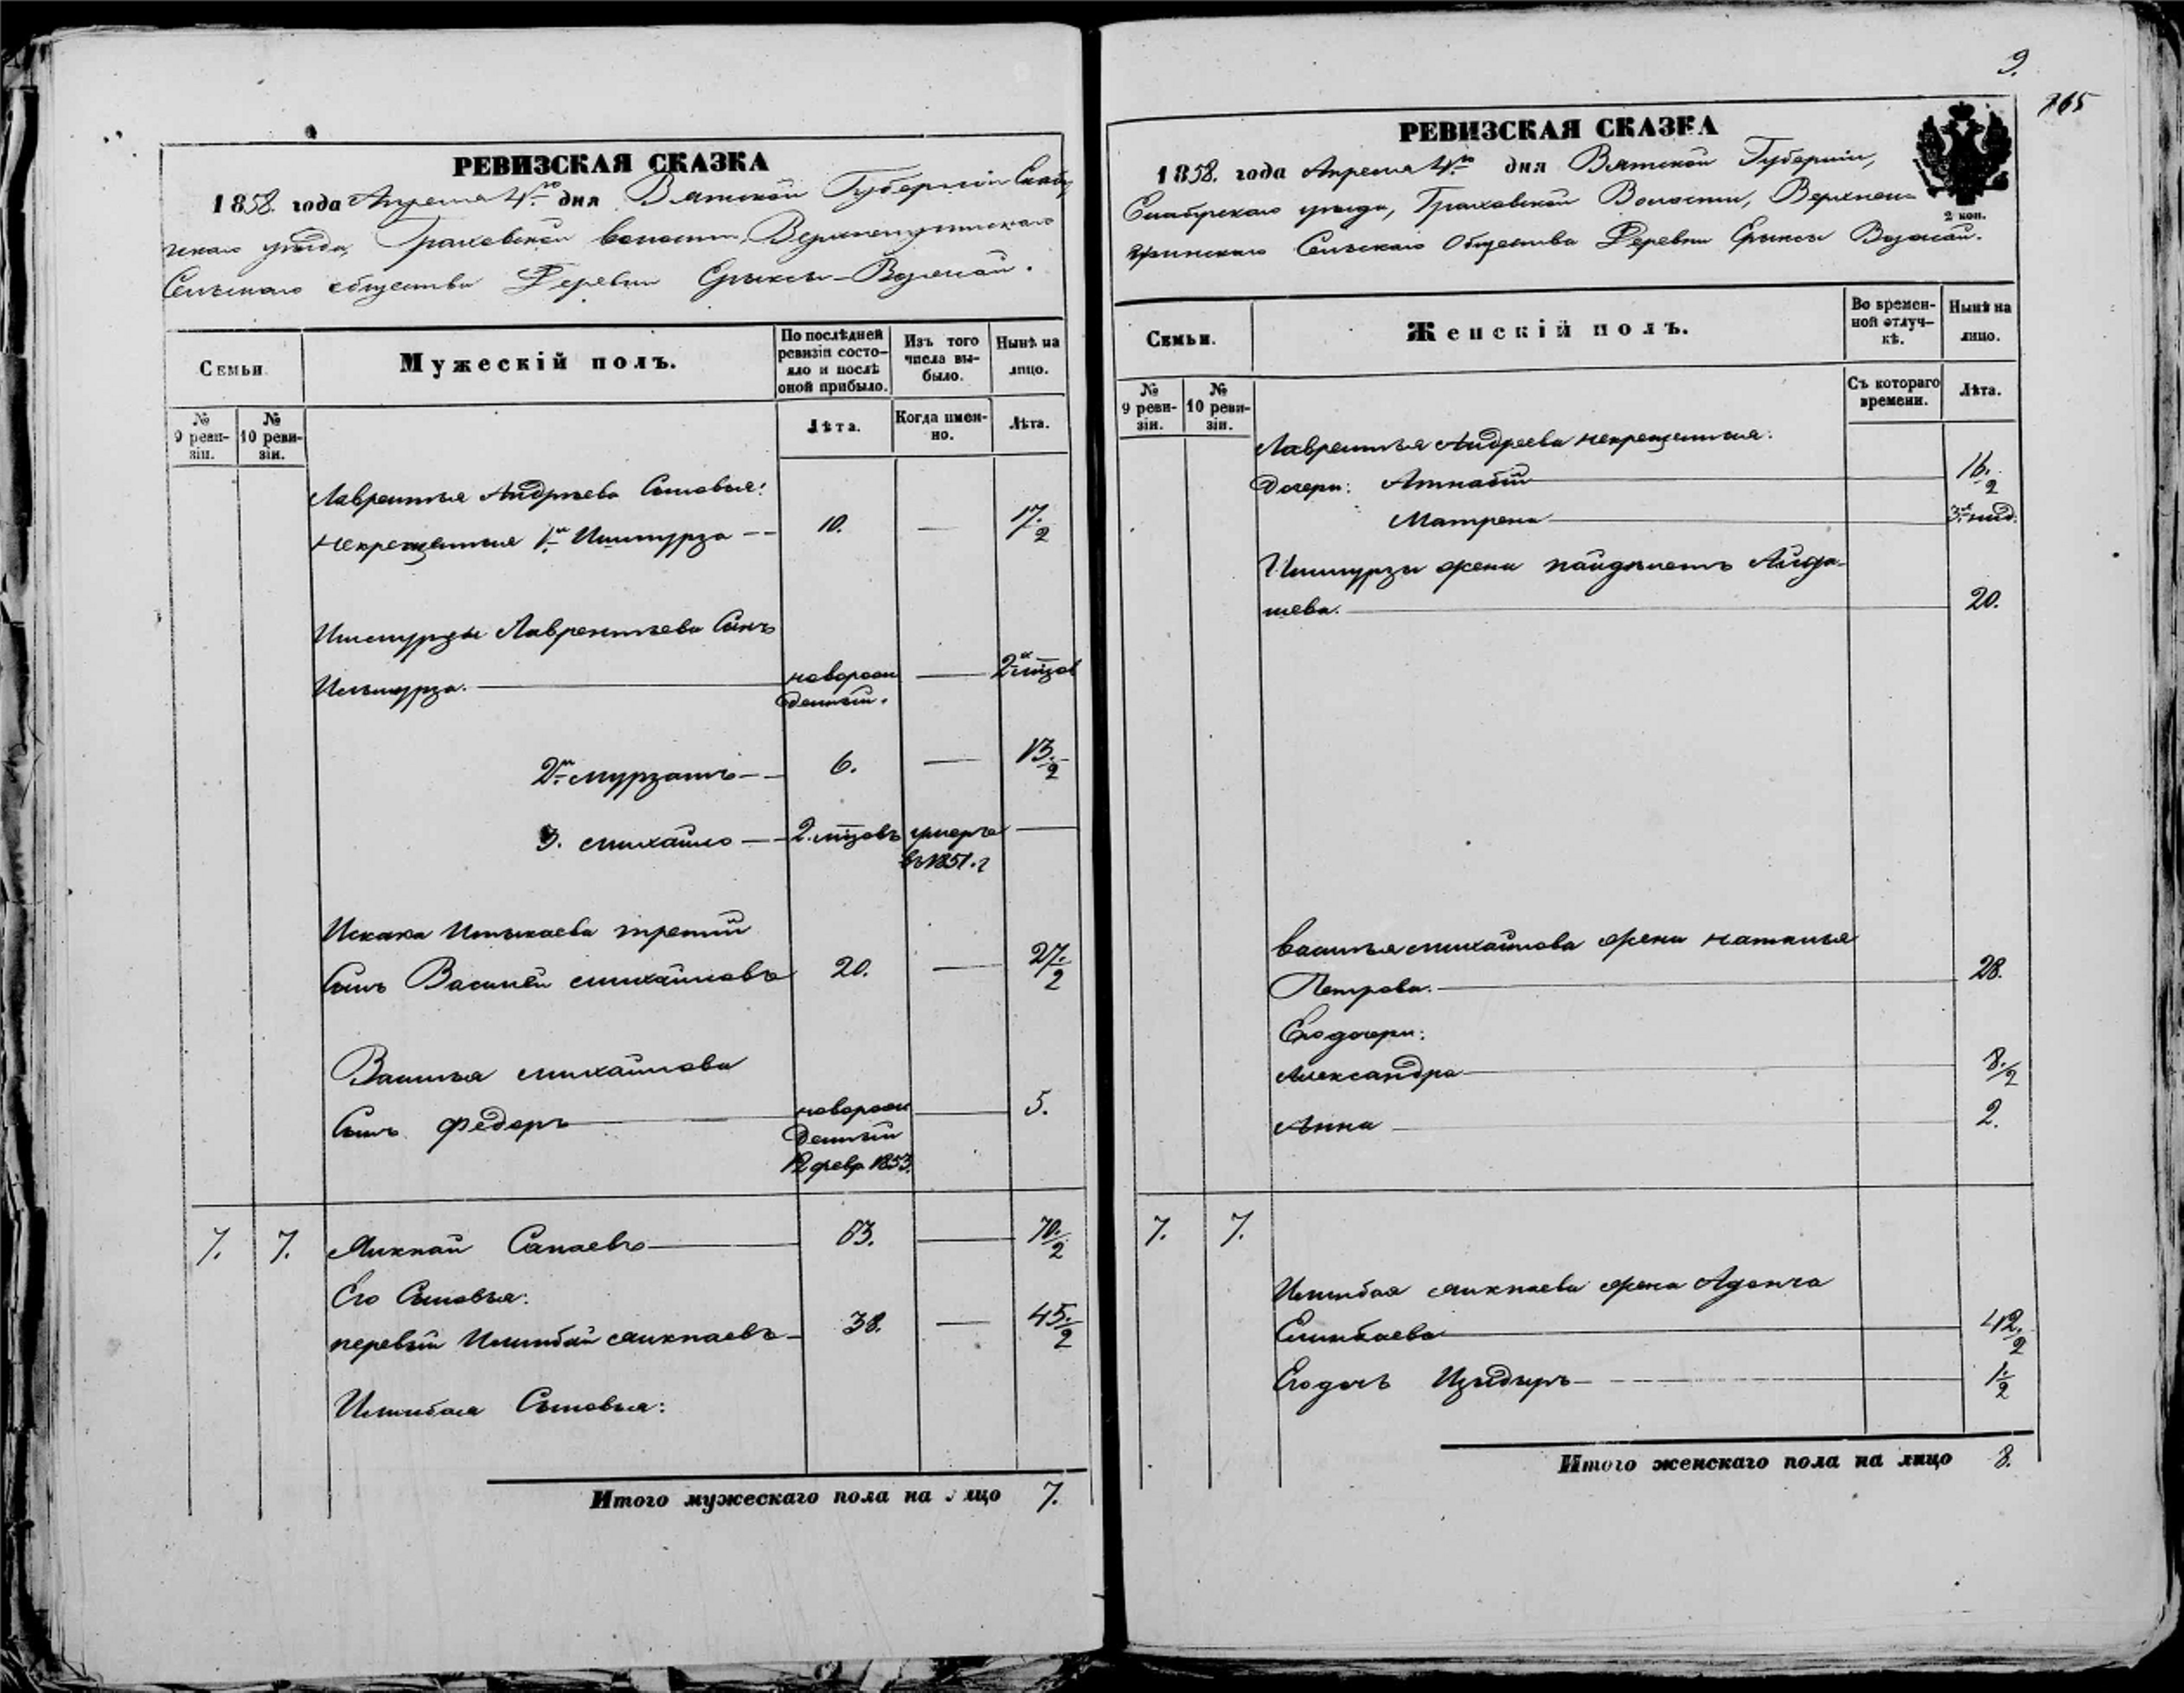 РЕВИЗСКАЯ СКАЗКА
1858. года Апреля 4го дня Вятской Губернiи Елабу
скаго уезда, Граховской волости,
Сельскаго общества Деревни
Семьи.
Мужескiй полъ.
По послѣдней ревизiи состо-
яло и послѣ
оной прибыло.
Изъ того
числа вы-
было.
Нынѣ на
лицо.
№
9 реви-
зiи.
№
10 реви-
зiи.
Лѣта.
Когда имен-
но.
Лѣта.
Лаврентья Андреева Сыновья:
некрещенные 1й Ишмурза -- 10. — 17./2
Ишмурзы Лаврентьева Сынъ
Ильмурза. — новорож
денный. — 2х мцов
2й Мурзашъ — 6. — 13./2
3. Михайло — 2. мцовъ умеръ —
въ 1851. г
Искака Ишыкаева третiй
Сынъ Василiй Михайловъ 20. — 27./2
Василья Михайлова
Сынъ Федоръ — новорож — 5.
денный
12 февр. 1853.
7. 7. Микпай Сапаевъ — 63. — 70./2
Его Сыновья:
первый Ишимбай Микпаевъ — 38. — 45./2
Ишимбая Сыновья:
Итого мужескаго пола на лицо 7.
9.
765
РЕВИЗСКАЯ СКАЗКА
1858. года Апреля 4го дня Вятской Губернiи,
Елабугскаго уезда, Граховской Волости,
Сельскаго Общества Деревни
2 коп.
Семьи.
Женскiй полъ.
Во времен-
ной отлуч-
кѣ.
Нынѣ на
лицо.
№
9 реви-
зiи.
№
10 реви-
зiи.
Съ котораго
времени.
Лѣта.
Лаврентья Андреева некрещенныя:
Дочери: — 16./2
Матрена — 3х нид.
Ишмурзы жена Айда-
шева. — 20.
Василья Михайлова жена
Петрова. — 28.
Его дочери:
Александра — 8./2
Анна — 2.
7. 7.
Ишимбая Микпаева жена
— 42./2
Его дочь — 1./2
Итого женскаго пола на лицо 8.